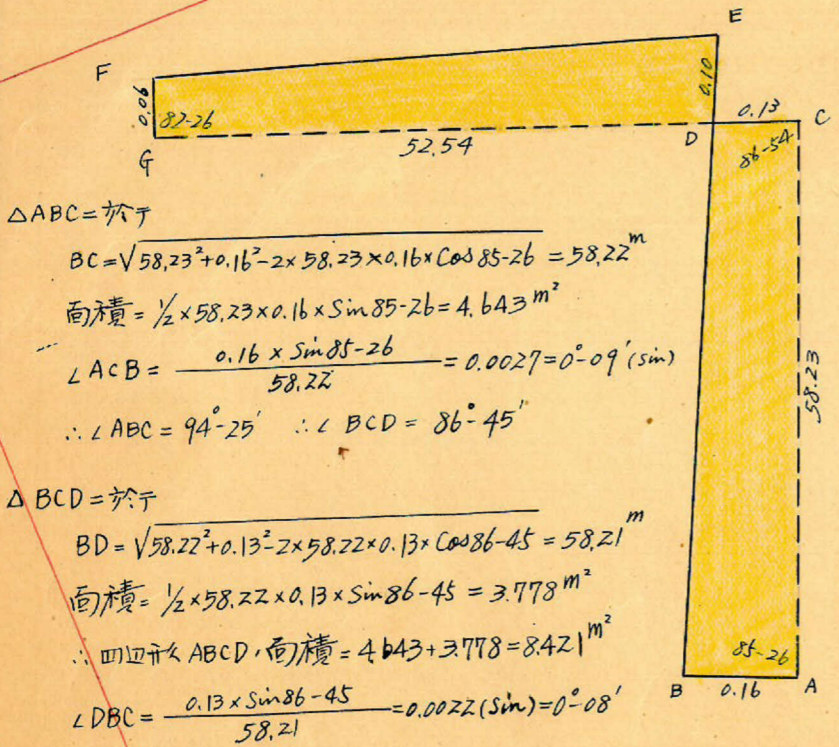 E
F
0.06
82-26
G
52.54
0.10
D
0.13
C
86-54
58.23
85-26
B
0.16
A
△ABC=於テ
BC=√58.23²+0.16²-2×58.23×0.16×Cos85-26 = 58.22ᵐ
面積= 1/2×58.23×0.16×Sin85-26= 4.643 m²
∠ACB = 0.16 × Sin85-26 / 58.22 = 0.0027=0°-09′(sin)
∴∠ABC= 94°-25′ ∴∠BCD= 86°-45′
△BCD=於テ
BD=√58.22²+0.13²-2×58.22×0.13×Cos86-45 = 58.21ᵐ
面積= 1/2×58.22×0.13×Sin86-45 = 3.778 m²
∴四辺形ABCD,面積=4.643+3.778=8.421 m²
∠DBC= 0.13×Sin86-45 / 58.21 =0.0022(Sin)=0°-08′